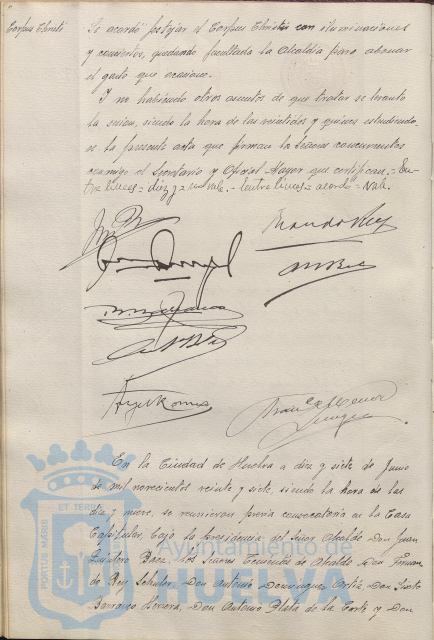 Corpus Christi
Se acordó festejar el Corpus Christi con iluminaciones
y conciertos, quedando facultada la Alcaldía para abonar
el gasto que ocasione.
Y no habiendo otros asuntos de que tratar se levantó
la sesión, siendo la hora de las veintidos y quince, extendiendo-
se la presente acta que firman los Señores concurrentes
conmigo el Secretario y Oficial Mayor que certifican.= En-
tre líneas = diez y = no vale.- Entre líneas = acordó = Vale.
En la Ciudad de Huelva a diez y siete de Junio
de mil novecientos veinte y siete, siendo la hora de las
diez y nueve, se reunieron previa convocatoria en la Casa
Capitular bajo la presidencia del Señor Alcalde Don Juan
Quintero Báez, los Señores Tenientes de Alcalde Don Fernan-
do Rey Schuler, Don Antonio Domínguez Ortiz, Don Sixto
Barranco Herrera, Don Antonio Plata de la Corte y Don
Ayuntamiento de
HUELVA
PORTUS MARIS
ET TERRE